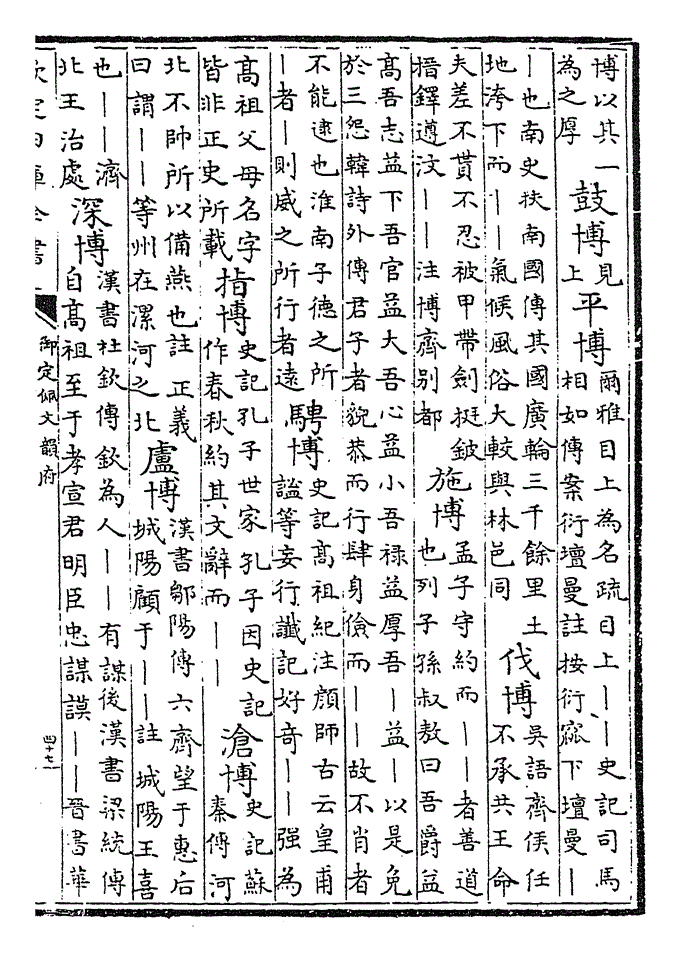 博以其一為之厚 鼓博 見上 平博 爾雅目上為名疏目上｜｜史記司馬相如傳案衍壇曼註按衍窳下壇曼｜
｜也南史扶南國傳其國廣輪三千餘里土地洿下而｜｜氣候風俗大較與林邑同 伐博 吳語齊侯任不承共王命
夫差不貰不忍被甲帶劍挺鈹搢鐸遵汶｜｜注博齊別都 施博 孟子守約而｜｜者善道也列子孫叔敖曰吾爵益
高吾志益下吾官益大吾心益小吾祿益厚吾｜益｜以是免於三怨韓詩外傳君子者貌恭而行肆身儉而｜｜故不肖者
不能逮也淮南子德之所｜者｜則威之所行者遠 騁博 史記高祖紀注顏師古云皇甫謐等妄行讖記好奇｜｜强為
高祖父母名字皆非正史所載 指博 史記孔子世家孔子因史記作春秋約其文辭而｜｜ 滄博 史記蘇秦傳河
北不帥所以備燕也註正義曰謂｜｜等州在漯河之北 盧博 漢書鄒陽傳六齊望于惠后城陽顧于｜｜註城陽王喜
也｜｜濟北王治處 深博 漢書杜欽傳欽為人｜｜有謀後漢書梁統傳自高祖至于孝宣君明臣忠謀謨｜｜晉書華
欽定四庫全書
御定佩文韻府
四十七